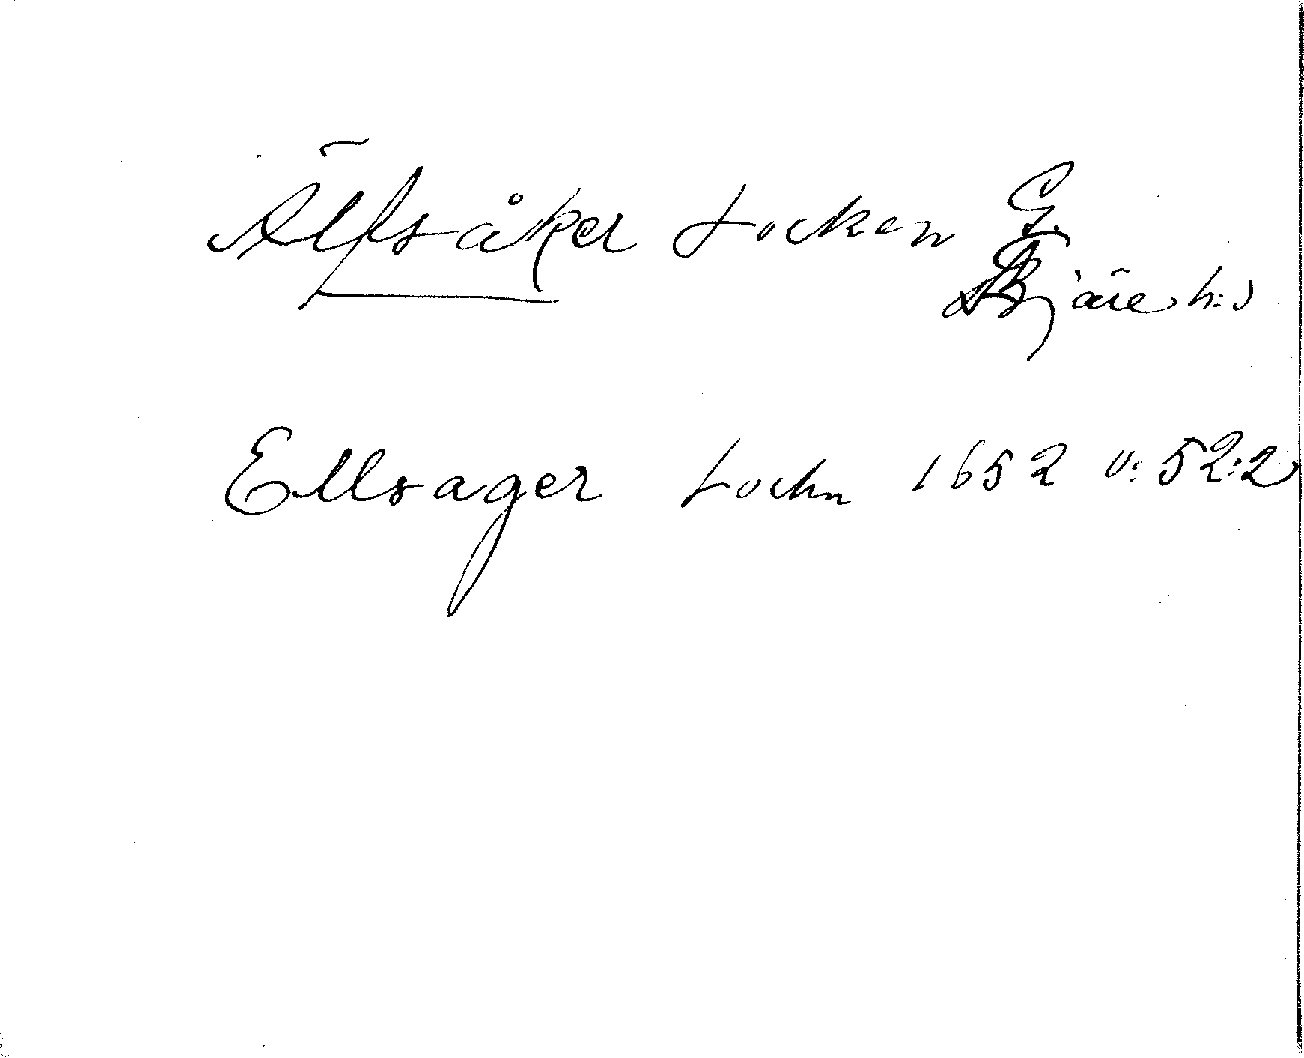 Älfsåker socken G.
Bjäre h:d
Ellsager sochn 1652 v: 52:2